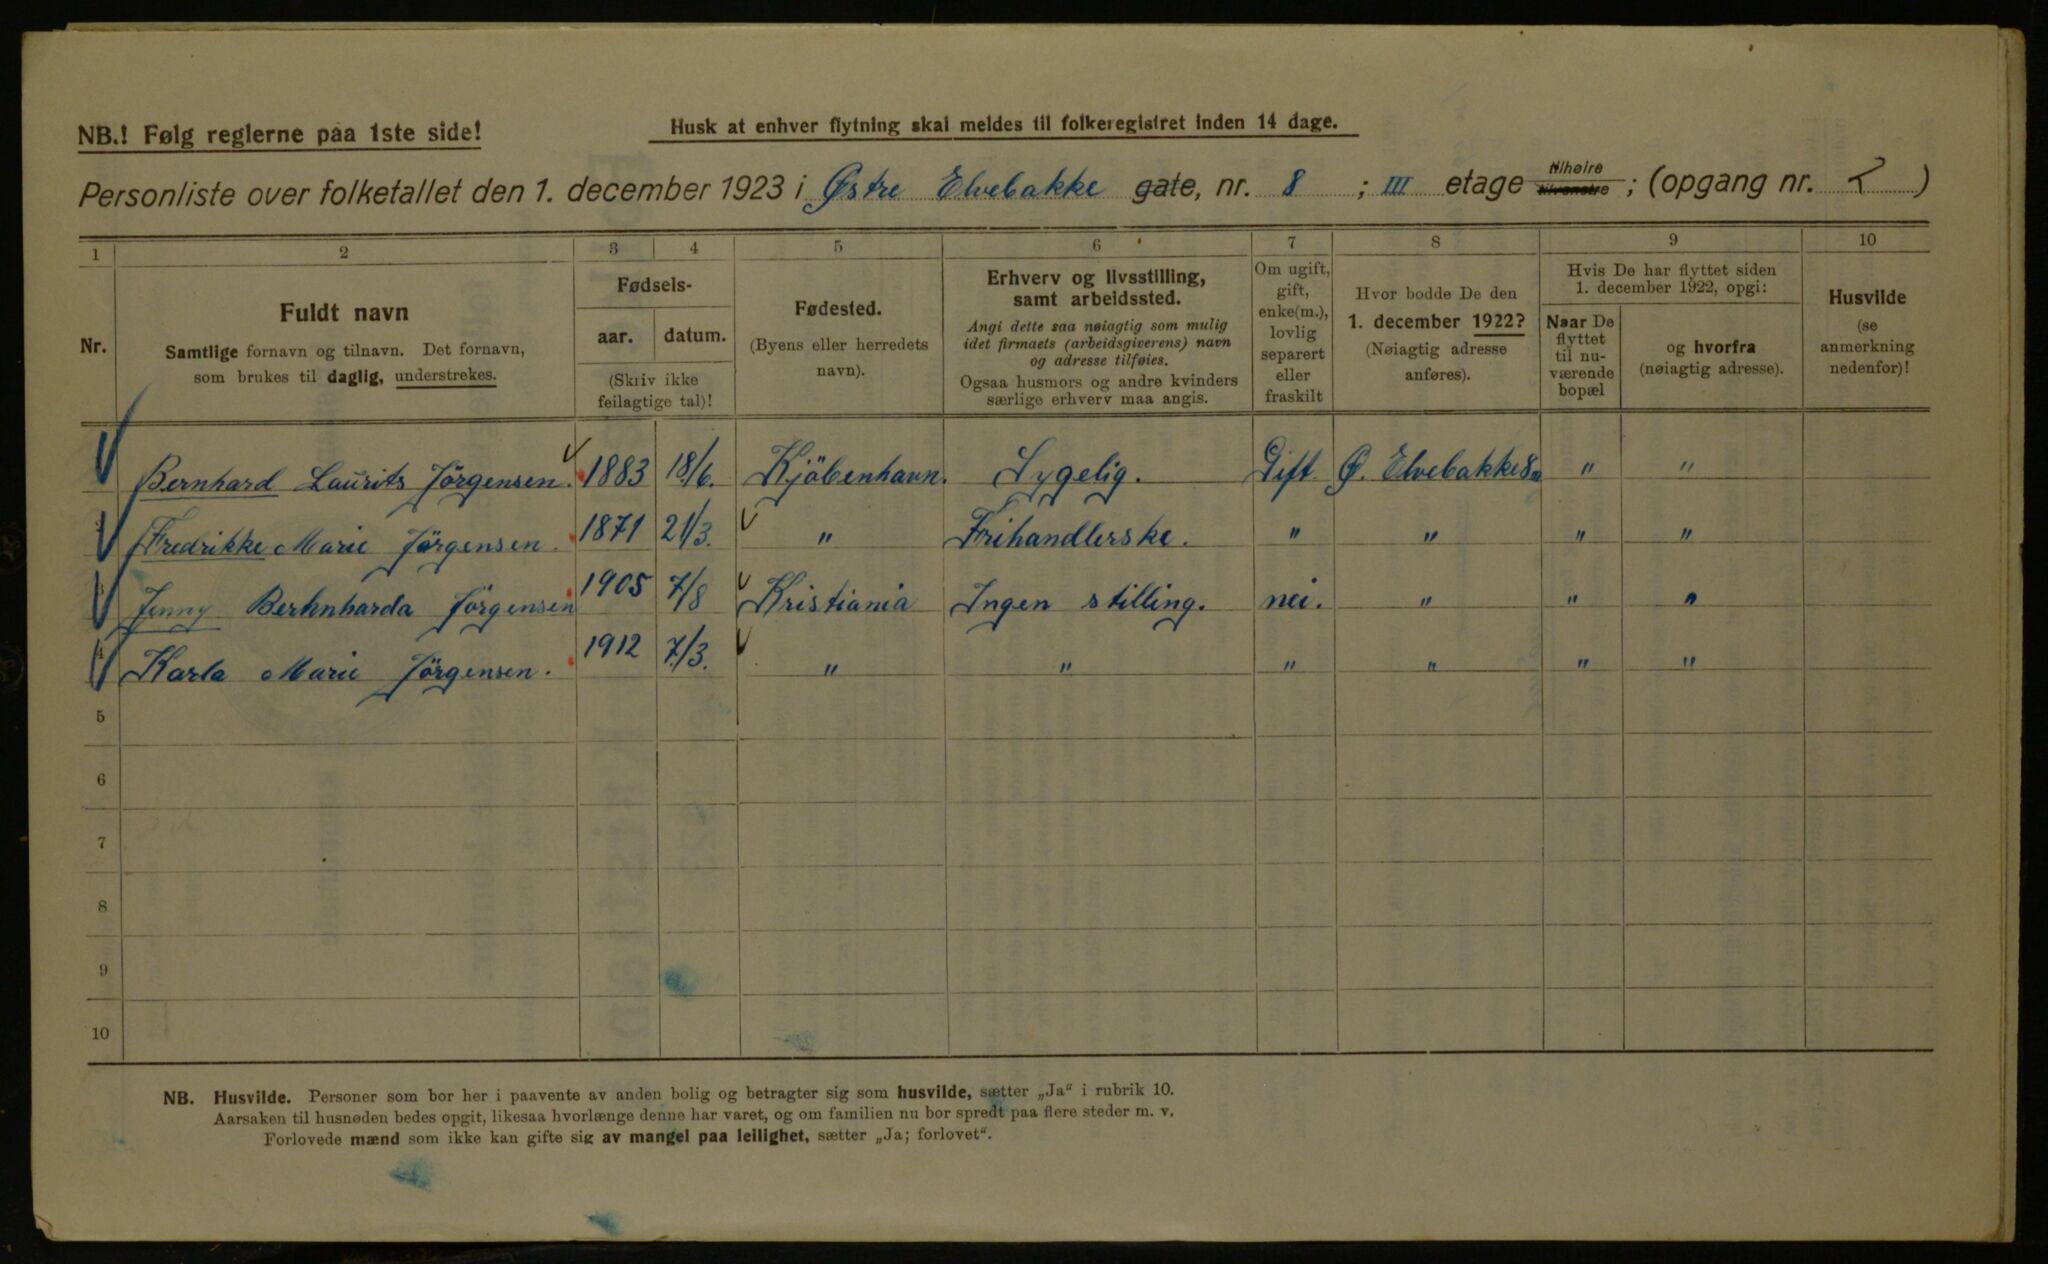 NB.! Følg reglerne paa 1ste side!
Husk at enhver flytning skal meldes til folkeregistret inden 14 dage.
Personliste over folketallet den 1. december 1923 i Østre Elvebakke gate, nr. 8 ; III etage tilhøire tilvenstre ; (opgang nr. )
1 2 3 4 5 6 7 8 9 10
Nr.
Fuldt navn
Samtlige fornavn og tilnavn. Det fornavn,
som brukes til daglig, understrekes.
Fødsels-
aar. datum.
(Skriv ikke
feilagtige tal)!
Fødested.
(Byens eller herredets
navn).
Erhverv og livsstilling,
samt arbeidssted.
Angi dette saa nøiagtig som mulig
idet firmaets (arbeidsgiverens) navn
og adresse tilføies.
Ogsaa husmors og andre kvinders
særlige erhverv maa angis.
Om ugift,
gift,
enke(m.),
lovlig
separert
eller
fraskilt
Hvor bodde De den
1. december 1922?
(Nøiagtig adresse
anføres).
Hvis De har flyttet siden
1. december 1922, opgi:
Naar De
flyttet
til nu-
værende
bopæl
og hvorfra
(nøiagtig adresse).
Husvilde
(se
anmerkning
nedenfor)!
Bernhard Laurits Jörgensen. 1883 18/6. Kjöbenhavn. Sygelig. Gift Ø. Elvebakke 8 " "
Fredrikke Marie Jörgensen. 1871 21/3. " Frihandlerske. " " " "
Jenny Berhnharda Jörgensen 1905 7/8 Kristiania Ingen stilling. nei. " " "
4 Karla Marie Jörgensen. 1912 7/3. " " " " " "
5
6
7
8
9
10
NB. Husvilde. Personer som bor her i paavente av anden bolig og betragter sig som husvilde, sætter „Ja“ i rubrik 10.
Aarsaken til husnøden bedes opgit, likesaa hvorlænge denne har varet, og om familien nu bor spredt paa flere steder m. v.
Forlovede mænd som ikke kan gifte sig av mangel paa leilighet, sætter „Ja; forlovet“.